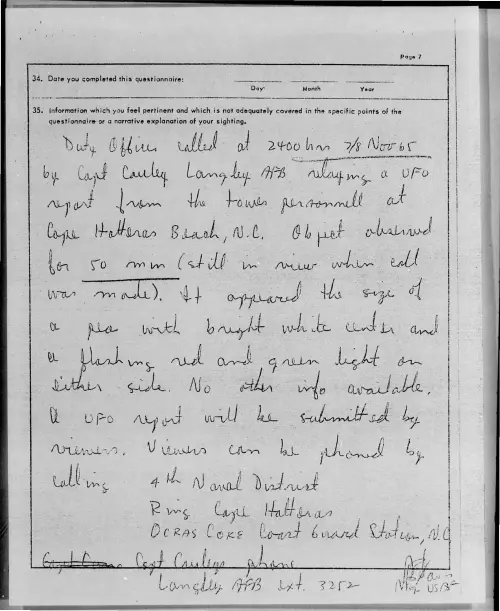 Page 7
34. Date you completed this questionnaire:
Day Month Year
35. Information which you feel pertinent and which is not adequately covered in the specific points of the
questionnaire or a narrative explanation of your sighting.
Duty Officer called at 2400 hrs 7/8 Nov 65
by Capt Cauley Langley AFB relaying a UFO
report from the tower personnell at
Cape Hatteras Beach, N.C. Object observed
for 50 min (still in view when call
was made). It appeared the size of
a pea with bright white center and
a flashing red and green light on
either side. No other info available.
A UFO report will be submitted by
viewers. Viewers can be phoned by
calling 4th Naval District
Ring Cape Hatteras
OCRAS COKE Coast Guard Station, N.C
Capt Cauleys phone
Langley AFB Ext. 3252
Maj USAF